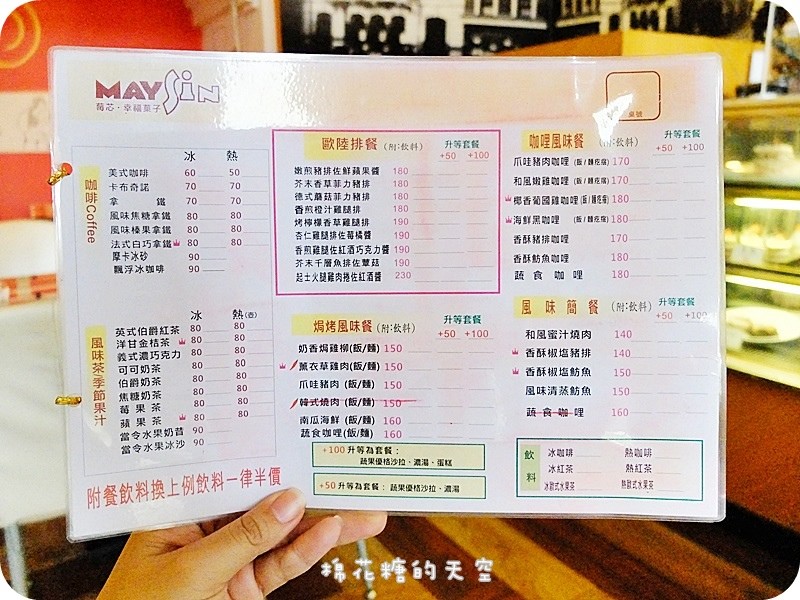 MAY SiN
莓芯·幸福菓子
桌號
咖啡Coffee
冰 熱
美式咖啡 60 50
卡布奇諾 70 70
拿鐵 70 70
風味焦糖拿鐵 80 80
風味榛果拿鐵 80 80
法式白巧拿鐵 80 80
摩卡冰砂 90
飄浮冰咖啡 90
風味茶/季節果汁
冰 熱(壺)
英式伯爵紅茶 80 80
洋甘金桔茶 80 80
義式濃巧克力 80 80
可可奶茶 80 80
伯爵奶茶 80 80
焦糖奶茶 80 80
莓果茶 80 80
蘋果茶 80 80
當令水果奶昔 90
當令水果冰沙 90
附餐飲料換上例飲料一律半價
歐陸排餐 (附:飲料) 升等套餐
+50 +100
嫩煎豬排佐鮮蘋果醬 180
芥末香草菲力豬排 180
德式蘑菇菲力豬排 180
香煎橙汁雞腿排 180
烤檸檬香草雞腿排 190
杏仁雞腿排佐莓橘醬 190
香煎雞腿佐紅酒巧克力醬 190
芥末千層魚排佐蕈菇 190
起士火腿雞肉捲佐紅酒醬 230
焗烤風味餐 (附:飲料) 升等套餐
+50 +100
奶香焗雞柳(飯/麵) 150
薰衣草雞肉(飯/麵) 150
爪哇豬肉 (飯/麵) 150
韓式燒肉 (飯/麵) 150
南瓜海鮮 (飯/麵) 160
蔬食咖哩(飯/麵) 160
+100升等為套餐：
蔬果優格沙拉、濃湯、蛋糕
+50升等為套餐： 蔬果優格沙拉、濃湯
咖哩風味餐 (附:飲料) 升等套餐
+50 +100
爪哇豬肉咖哩 (飯/麵疙瘩) 170
和風嫩雞咖哩 (飯/麵疙瘩) 170
椰香葡國雞咖哩 (飯/麵疙瘩) 180
海鮮黑咖哩 (飯/麵疙瘩) 180
香酥豬排咖哩 170
香酥魴魚咖哩 180
蔬食咖哩 180
風味簡餐 (附:飲料) 升等套餐
+50 +100
和風蜜汁燒肉 140
香酥椒塩豬排 140
香酥椒塩魴魚 150
風味清蒸魴魚 150
蔬食咖哩 160
飲料
冰咖啡 熱咖啡
冰紅茶 熱紅茶
冰歐式水果茶 熱歐式水果茶
棉花糖的天空